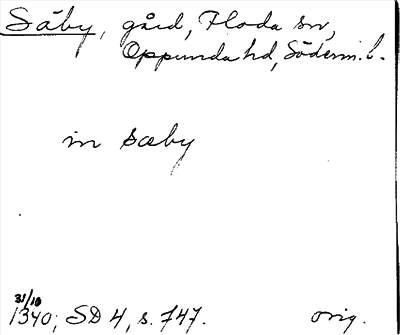 Säby, gård, Floda sn,
Oppunda hd, Söderm. l.
in sæby
31/10
1340; SD 4, s. 747. orig.